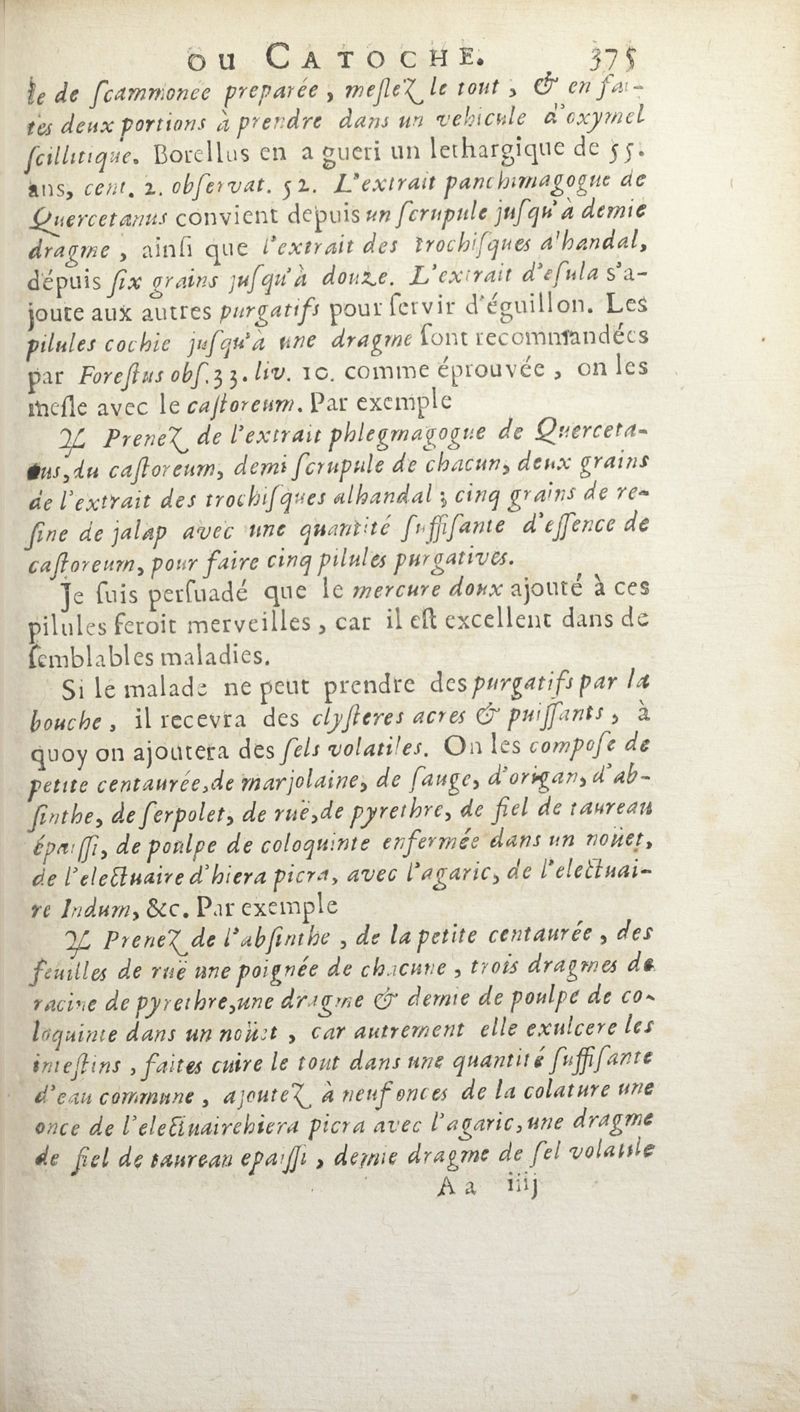 OU CATOCHE. 375
le de ſcammonée preparée, meſlez le tout, & en fai-
tes deux portions à prendre dans un vehicule d'oxymel
ſcillitique. Borellus en a gueri un lethargique de 55.
ans, cent. 2. obſervat. 52. L'extrait panchimagogue de
Quercetanus convient depuis un ſcrupule juſqu'à demie
dragme, ainſi que l'extrait des trochiſques alhandal,
dépuis ſix grains juſqu'à douze. L'extrait d'eſula s'a-
joute aux autres purgatifs pour ſervir d'éguillon. Les
pilules cochie juſqu'à une dragme ſont recommandées
par Foreſtus obſ. 33. liv. 10. comme éprouvée, on les
meſle avec le caſtoreum. Par exemple
♃ Prenez de l'extrait phlegmagogue de Querceta-
nus, du caſtoreum, demi ſcrupule de chacun, deux grains
de l'extrait des trochiſques alhandal; cinq grains de re-
ſine de jalap avec une quantité ſuffiſante d'eſſence de
caſtoreum, pour faire cinq pilules purgatives.
Je ſuis perſuadé que le mercure doux ajouté à ces
pilules feroit merveilles, car il eſt excellent dans de
ſemblables maladies.
Si le malade ne peut prendre des purgatifs par la
bouche, il recevra des clyſteres acres & puiſſants, à
quoy on ajoutera des ſels volatiles. On les compoſe de
petite centaurée, de marjolaine, de ſauge, d'origan, d'ab-
ſinthe, de ſerpolet, de ruë, de pyrethre, de fiel de taureau
épaiſſi, de poulpe de coloquinte enfermée dans un noüet,
de l'electuaire d'hiera picra, avec l'agaric, de l'electuai-
re Indum, &c. Par exemple
♃ Prenez de l'abſinthe, de la petite centaurée, des
feuilles de ruë une poignée de chacune, trois dragmes de
racine de pyrethre, une dragme & demie de poulpe de co-
loquinte dans un noüet, car autrement elle exulcere les
inteſtins, faites cuire le tout dans une quantité ſuffiſante
d'eau commune, ajoutez à neuf onces de la colature une
once de l'electuaire hiera picra avec l'agaric, une dragme
de fiel de taureau epaiſſi, demie dragme de ſel volatile
A a iiij